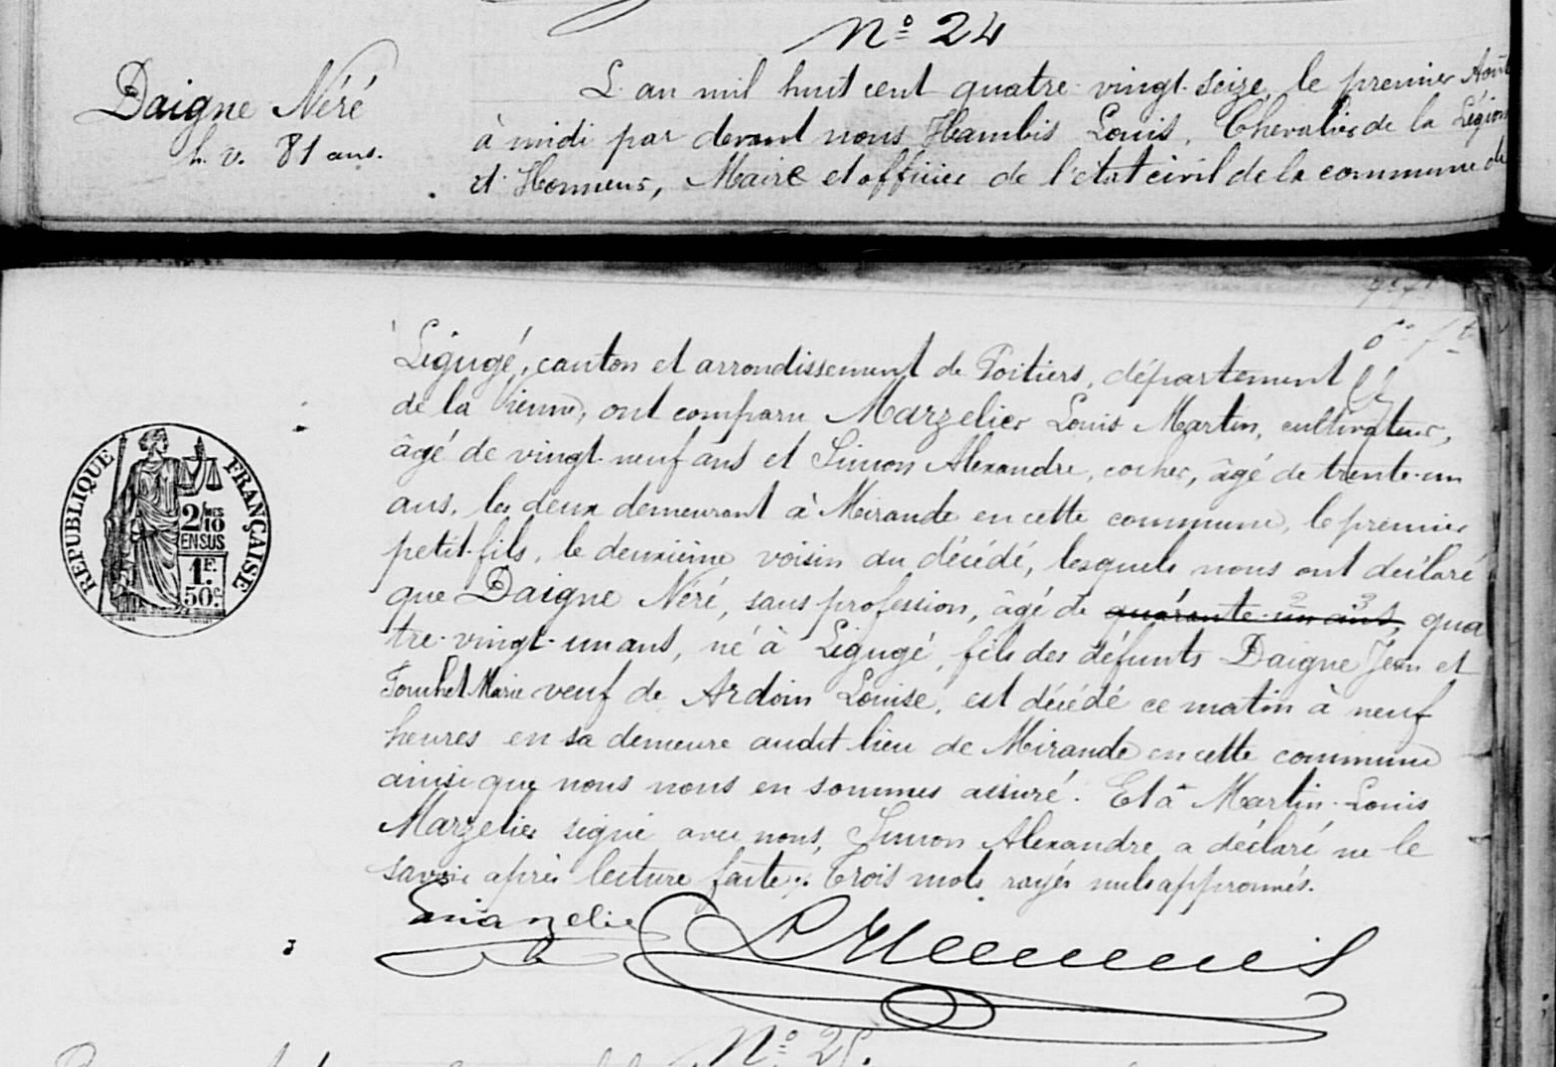 N° 24
Daigne Néré
h. v. 81 ans.
L'an mil huit cent quatre-vingt-seize, le premier Août
à midi par devant nous Hambis Louis, Chevalier de la Légion
d'Honneur, Maire et officier de l'état civil de la commune de
Ligugé, canton et arrondissement de Poitiers, département
de la Vienne, ont comparu Marzelier Louis Martin, cultivateur,
âgé de vingt-neuf ans et Simon Alexandre, cocher, âgé de trente-un
ans, les deux demeurant à Mirande en cette commune, le premier
petit-fils, le deuxième voisin du décédé, lesquels nous ont déclaré
que Daigne Néré, sans profession, âgé de quarante-un ans, qua
tre-vingt-un ans, né à Ligugé, fils des défunts Daigne Jean et
Fouchet Marie veuf de Ardoin Louise, est décédé ce matin à neuf
heures en sa demeure audit lieu de Mirande en cette commune
ainsi que nous nous en sommes assuré. Et a Martin-Louis
Marzelier signé avec nous, Simon Alexandre a déclaré ne le
savoir après lecture faite. Trois mots rayés nuls approuvés.
Marzelier
L Hambis
RÉPUBLIQUE FRANÇAISE
2/10
EN SUS
1F.
50c.
N° 25.